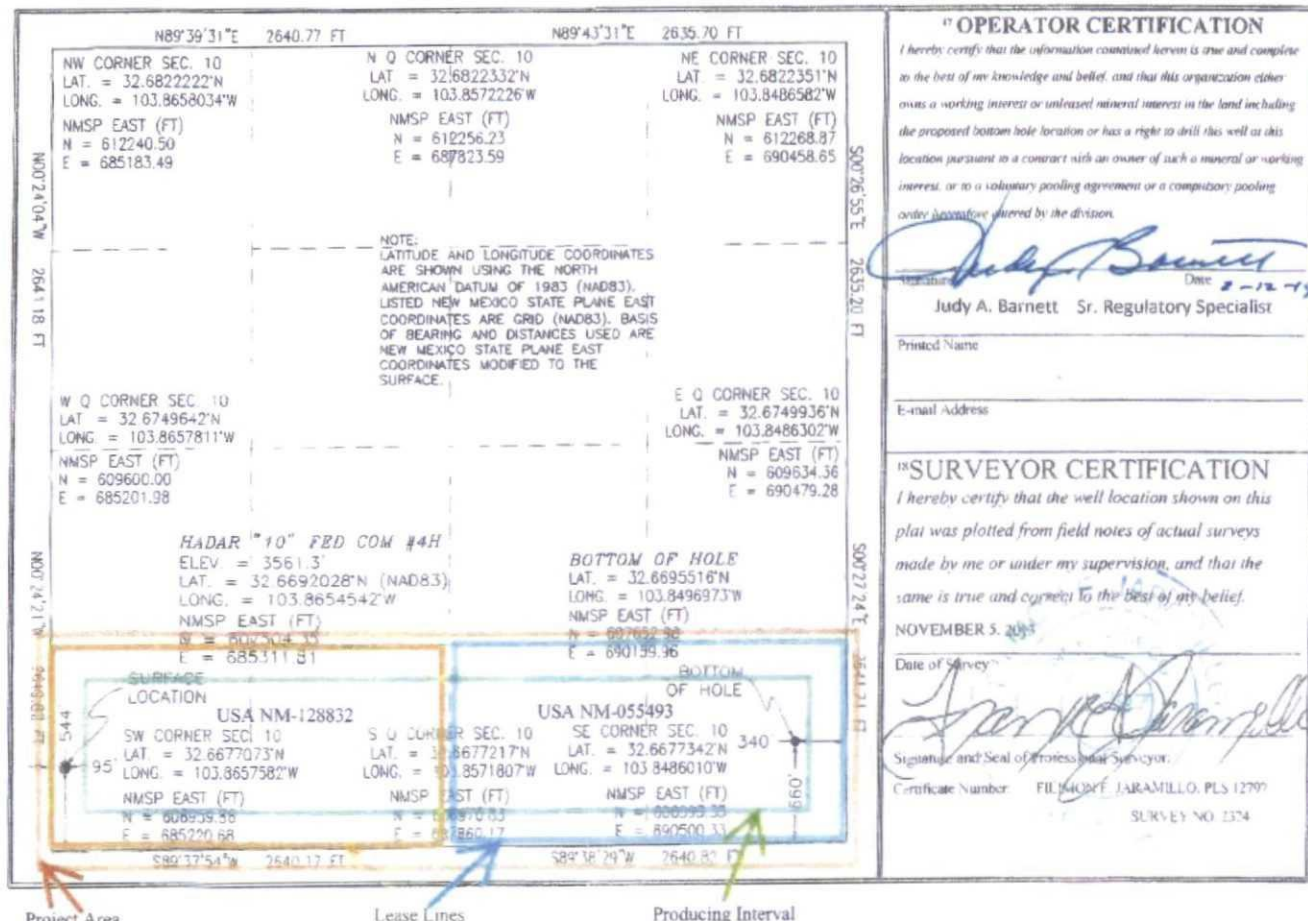 N89°39'31"E 2640.77 FT
N89°43'31"E 2635.70 FT
NW CORNER SEC. 10
LAT. = 32.6822222°N
LONG. = 103.8658034°W
NMSP EAST (FT)
N = 612240.50
E = 685183.49
N Q CORNER SEC. 10
LAT = 32.6822332°N
LONG. = 103.8572226°W
NMSP EAST (FT)
N = 612256.23
E = 687823.59
NE CORNER SEC. 10
LAT. = 32.6822351°N
LONG. = 103.8486582°W
NMSP EAST (FT)
N = 612268.87
E = 690458.65
N00°24'04"W 2641.18 FT
S00°26'55"E 2635.20 FT
NOTE:
LATITUDE AND LONGITUDE COORDINATES
ARE SHOWN USING THE NORTH
AMERICAN DATUM OF 1983 (NAD83).
LISTED NEW MEXICO STATE PLANE EAST
COORDINATES ARE GRID (NAD83). BASIS
OF BEARING AND DISTANCES USED ARE
NEW MEXICO STATE PLANE EAST
COORDINATES MODIFIED TO THE
SURFACE.
W Q CORNER SEC. 10
LAT = 32.6749642°N
LONG. = 103.8657811°W
NMSP EAST (FT)
N = 609600.00
E = 685201.98
E Q CORNER SEC. 10
LAT. = 32.6749936°N
LONG. = 103.8486302°W
NMSP EAST (FT)
N = 609634.36
E = 690479.28
HADAR "10" FED COM #4H
ELEV. = 3561.3'
LAT. = 32.6692028°N (NAD83)
LONG. = 103.8654542°W
NMSP EAST (FT)
E = 685311.81
BOTTOM OF HOLE
LAT. = 32.6695516°N
LONG. = 103.8496973°W
NMSP EAST (FT)
E = 690159.96
N00°24'21"W
S00°27'24"E 2641.71 FT
SURFACE
LOCATION
USA NM-128832
BOTTOM
OF HOLE
USA NM-055493
544
95'
340
660'
SW CORNER SEC. 10
LAT. = 32.6677073°N
LONG. = 103.8657582°W
NMSP EAST (FT)
E = 685220.68
S Q CORNER SEC. 10
LAT. = 32.6677217°N
LONG. = 103.8571807°W
NMSP EAST (FT)
SE CORNER SEC. 10
LAT. = 32.6677342°N
LONG. = 103.8486010°W
NMSP EAST (FT)
E = 690500.33
S89°37'54"W 2640.17 FT
S89°38'29"W 2640.82 FT
Project Area
Lease Lines
Producing Interval
17 OPERATOR CERTIFICATION
I hereby certify that the information contained herein is true and complete
to the best of my knowledge and belief, and that this organization either
owns a working interest or unleased mineral interest in the land including
the proposed bottom hole location or has a right to drill this well at this
location pursuant to a contract with an owner of such a mineral or working
interest, or to a voluntary pooling agreement or a compulsory pooling
order heretofore entered by the division.
Judy Barnett
Signature Date
Judy A. Barnett Sr. Regulatory Specialist
Printed Name
E-mail Address
18 SURVEYOR CERTIFICATION
I hereby certify that the well location shown on this
plat was plotted from field notes of actual surveys
made by me or under my supervision, and that the
same is true and correct to the best of my belief.
NOVEMBER 5,
Date of Survey
Signature and Seal of Professional Surveyor:
Certificate Number: FILIMON F. JARAMILLO, PLS 12797
SURVEY NO. 2324